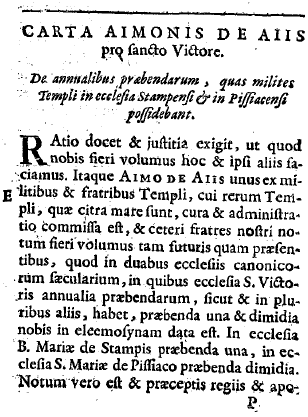 CARTA AIMONIS DE AIIS
pro sancto Victore.
De annualibus præbendarum, quas milites
Templi in ecclesia Stampensi & in Pissiacensi
possidebant.
RAtio docet & justitia exigit, ut quod
nobis fieri volumus hoc & ipsi aliis fa-
ciamus. Itaque AIMO DE AIIS unus ex mi-
E litibus & fratribus Templi, cui rerum Tem-
pli, quæ citra mare sunt, cura & administra-
tio commissa est, & ceteri fratres nostri no-
tum fieri volumus tam futuris quam præsen-
tibus, quod in duabus ecclesiis canonico-
rum sæcularium, in quibus ecclesia S. Victo-
ris annualia præbendarum, sicut & in plu-
ribus aliis, habet, præbenda una & dimidia
nobis in eleemosynam data est. In ecclesia
B. Mariæ de Stampis præbenda una, in ec-
clesia S. Mariæ de Pissiaco præbenda dimidia.
Notum vero est & præceptis regiis & apo-
P